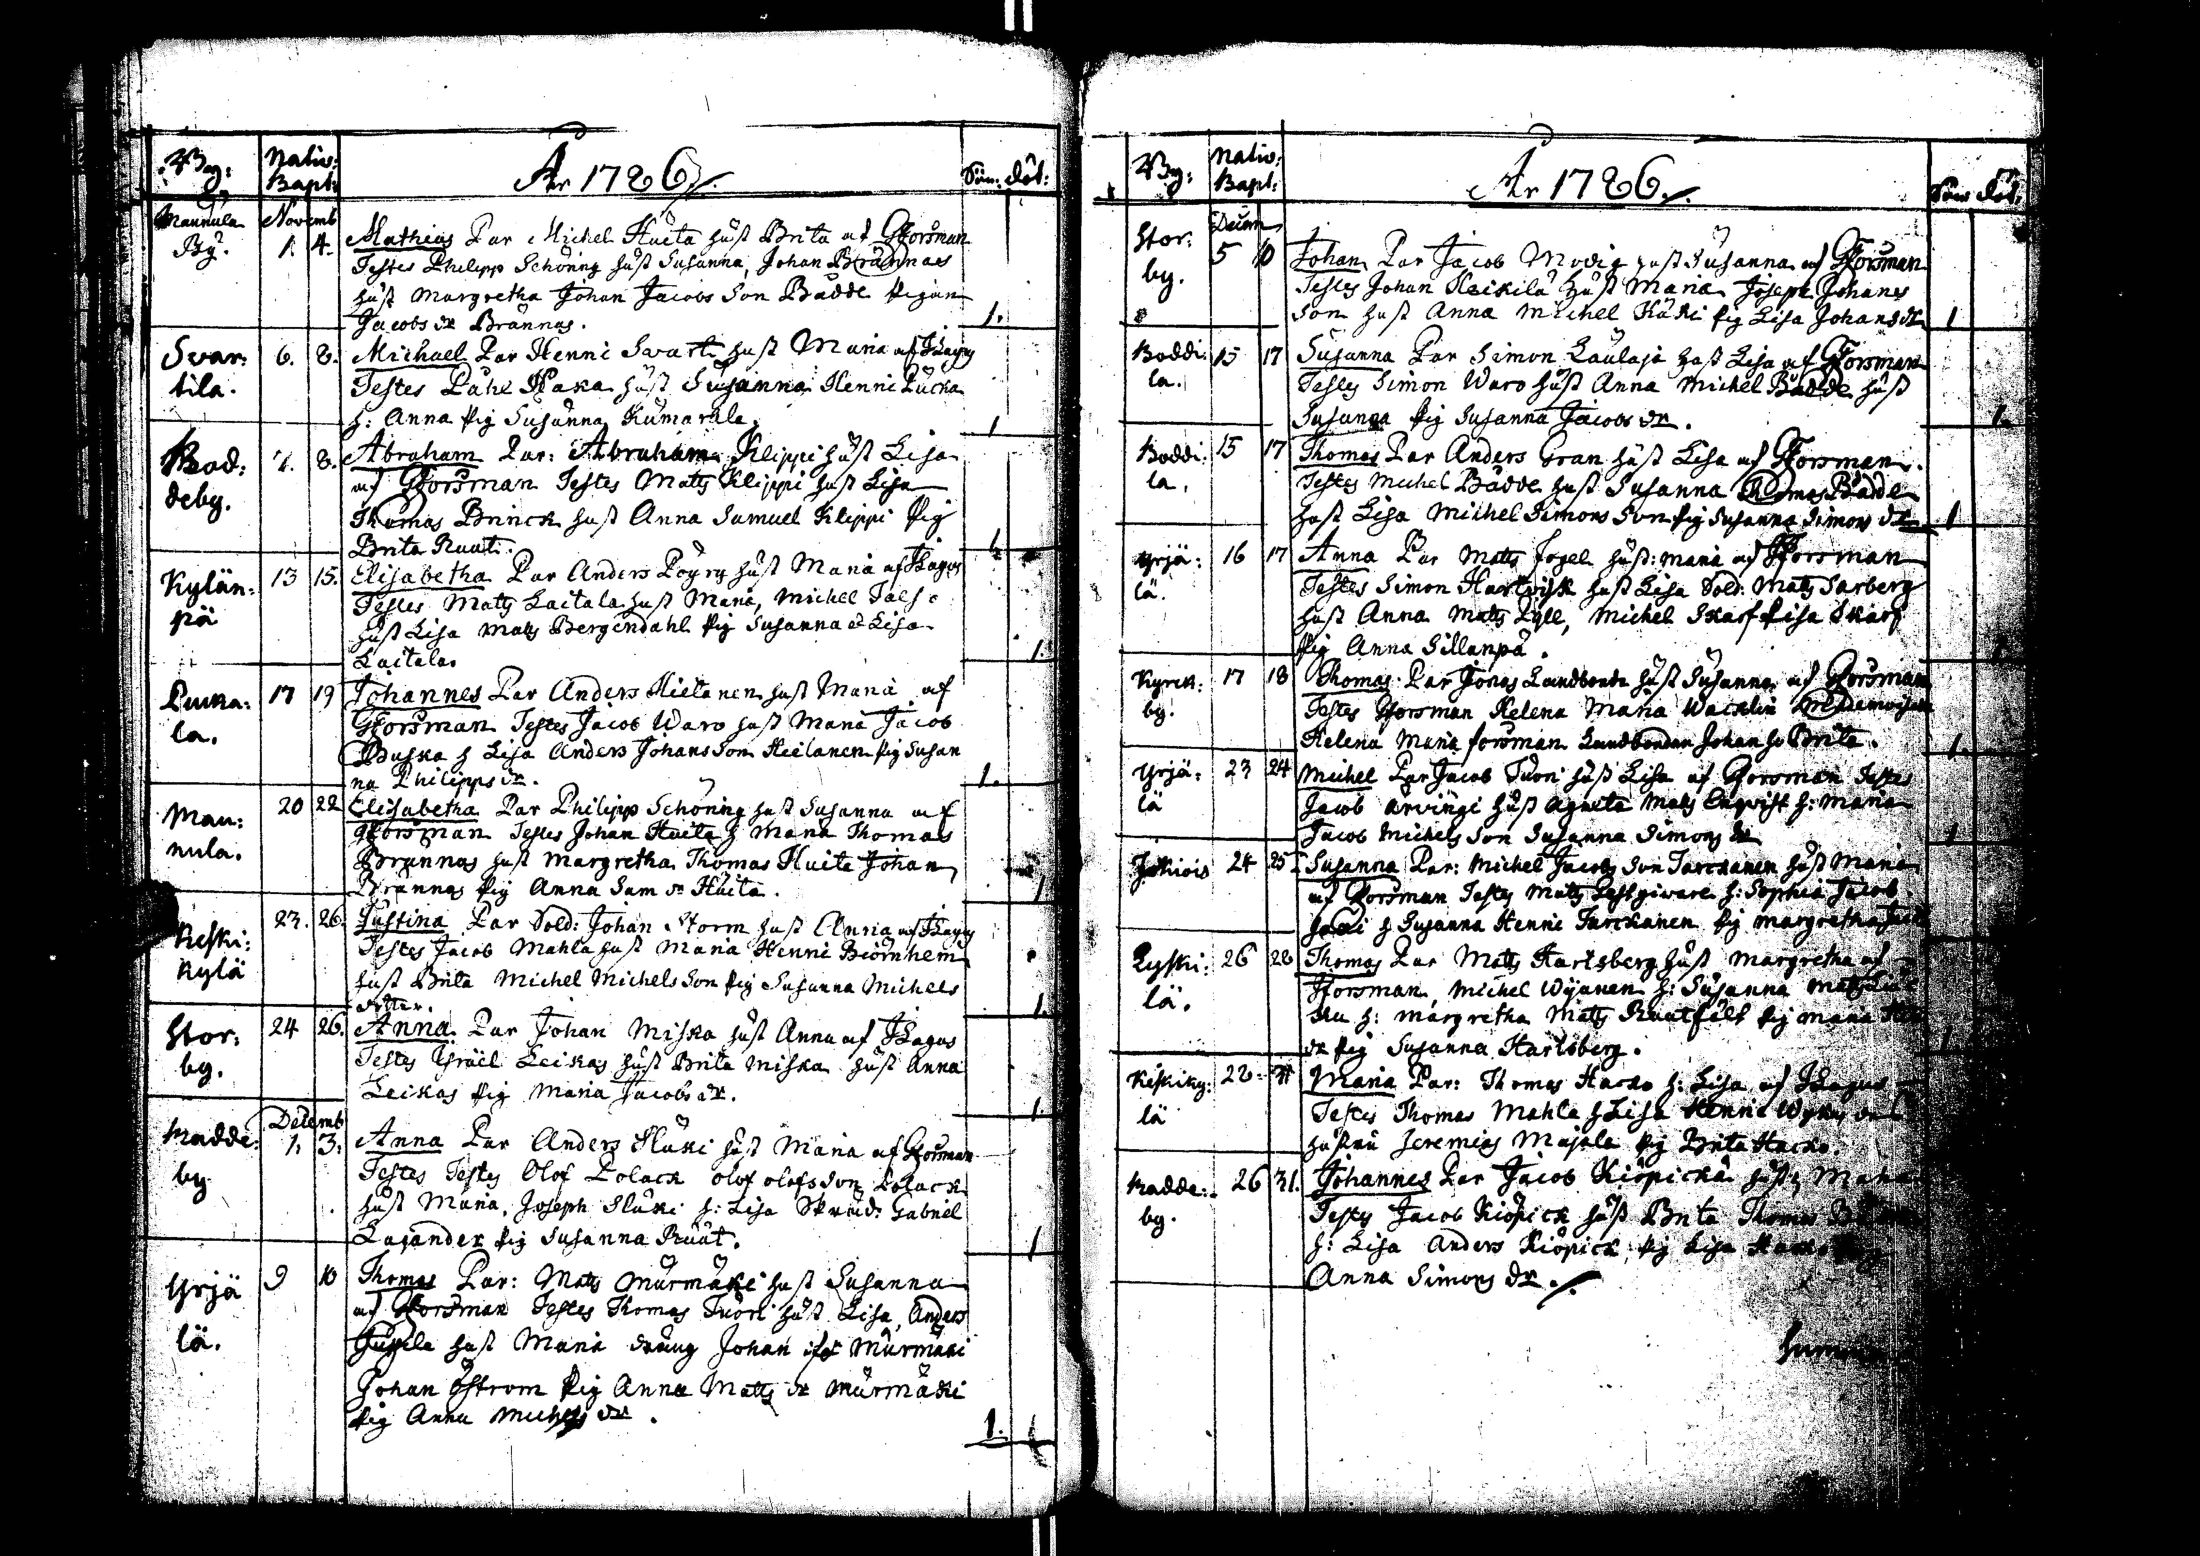 By:
Nativ:
Bapt:
År 1786.
Sön: Döt:
Mannula
By.
Novemb
1. 4.
Mathias Par Michel Huita hust Brita af Forsman
Testes Philipp Schöning hust Susanna, Johan Brännas
hust Margretha Johan Jacobs Son Bådde pigan
Jacobs dr Brännas.
1.
Svar:
tila.
6. 8.
Michael Par Henni Svart hust Maria af
Testes Påhl Haka hust Susanna Henni Pucka
h: Anna pig Susanna Kumarala.
1
Bod:
deby.
7. 8.
Abraham Par: Abraham Klippi hust Lisa
af Forsman Testes Matts Klippi hust Lisa
Thomas Brinck hust Anna Samuel Klippi pig
Brita Ruut.
1
Kylän:
pä
13 15.
Elisabetha Par Anders Pöyry hust Maria af
Testes Matts Laitala hust Maria, Michel
hust Lisa Matts Bergendahl pig Susanna Lisa
Laitala.
1
Pucka:
la.
17 19
Johannes Par Anders Hietanen hust Maria af
Forsman Testes Jacob Waro hust Maria Jacob
Buska h Lisa Anders Johans Son Hietanen pig Susan
na Philipps dr.
1.
Man:
nula.
20 22
Elisabetha Par Philipp Schöning hust Susanna af
Forsman Testes Johan Huita h Maria Thomas
Brännas hust Margretha Thomas Huita Johan
Brännas pig Anna Sam dr Huita.
1
Keski:
kylä
23. 26.
Justina Par Sold: Johan Storm hust Anna af
Testes Jacob Mahla hust Maria Henni Biörnhem
hust Brita Michel Michels Son pig Susanna Michels
dotter.
1.
Stor:
by.
24 26.
Anna Par Johan Miska hust Anna af
Testes Ysraël Leikas hust Brita Miska hust Anna
Leikas pig Maria Jacobs dr.
1
Kadde:
by
Decemb
1. 3.
Anna Par Anders Sluki hust Maria af Forsman
Testes Testes Olof Polack Olof Olofs Son Polack
hust Maria, Joseph Sluki h: Lisa Skräd: Gabriel
Lagander pig Susanna Ruut.
1
Yrjä
lä.
9 10
Thomas Par: Matts Murmäki hust Susanna
af Forsman Testes Thomas Tuori hust Lisa, Anders
hust Maria dräng Johan Murmäki
Johan Öström pig Anna Matts dr Murmäki
pig Anna Michels dr.
1.
By:
Nativ:
Bapt:
År 1786.
Sön Döt:
Stor:
by.
Decem
5 10
Johan Par Jacob Modig hust Susanna af Forsman
Testes Johan Heikilä hust Maria Joseph Johans
Son hust Anna Michel Käki pig Lisa Johans dr
1
Boddi:
la.
15 17
Susanna Par Simon Laulaja hust Lisa af Forsman
Testes Simon Waro hust Anna Michel Bådde hust
Susanna pig Susanna Jacobs dr.
1.
Boddi:
la.
15 17
Thomas Par Anders Gran hust Lisa af Forsman.
Testes Michel Bådde hust Susanna Thomas Bådde
hust Lisa Michel Simons Son pig Susanna Simons dr
1
Yrjä:
lä.
16 17
Anna Par Matts Fogel hust: Maria af Forsman
Testes Simon Hartvik hust Lisa Sold: Matts Sarberg
hust Anna Matts Pyll, Michel Skarf Lisa Skarf
pig Anna Sillanpä.
Kyrck:
by.
17 18
Thomas Par Jonas Landbonde hust Susanna af Forsman
Testes Forsman Helena Maria Wacklin
Helena Maria Forsman Landbondan Johan h Brita.
1.
Yrjä:
lä
23 24
Michel Par Jacob Tuori hust Lisa af Forsman Testes
Jacob Arvingi hust Agneta Matts Enqvist h: Maria
Jacob Michels Son Susanna Simons dr
1
Jokiois
24 25
Susanna Par: Michel Jacobs Son Tarckanen hust Maria
af Forsman Testes Matts Gestgiware h: Sophia Jacob
h Susanna Henni Tarckanen pig Margretha
Lyski:
lä.
26 28
Thomas Par Matts Hartsberg hust Margretha af
Forsman, Michel Wijanen h: Susanna Matts
h: Margretha Matts Ruutfält pig Maria
dr pig Susanna Hartsberg.
1
Keskiky:
lä
28
Maria Par: Thomas Hacko h: Lisa af
Testes Thomas Mahla h Lisa Henni
hustru Jeremias Majala pig Brita Hacko.
Kadde:
by.
26 31.
Johannes Par Jacob Kiöpickä hust: Maria
Testes Jacob Kiöpick hust Brita Thomas
h: Lisa Anders Kiöpick, pig Lisa
Anna Simons dr.